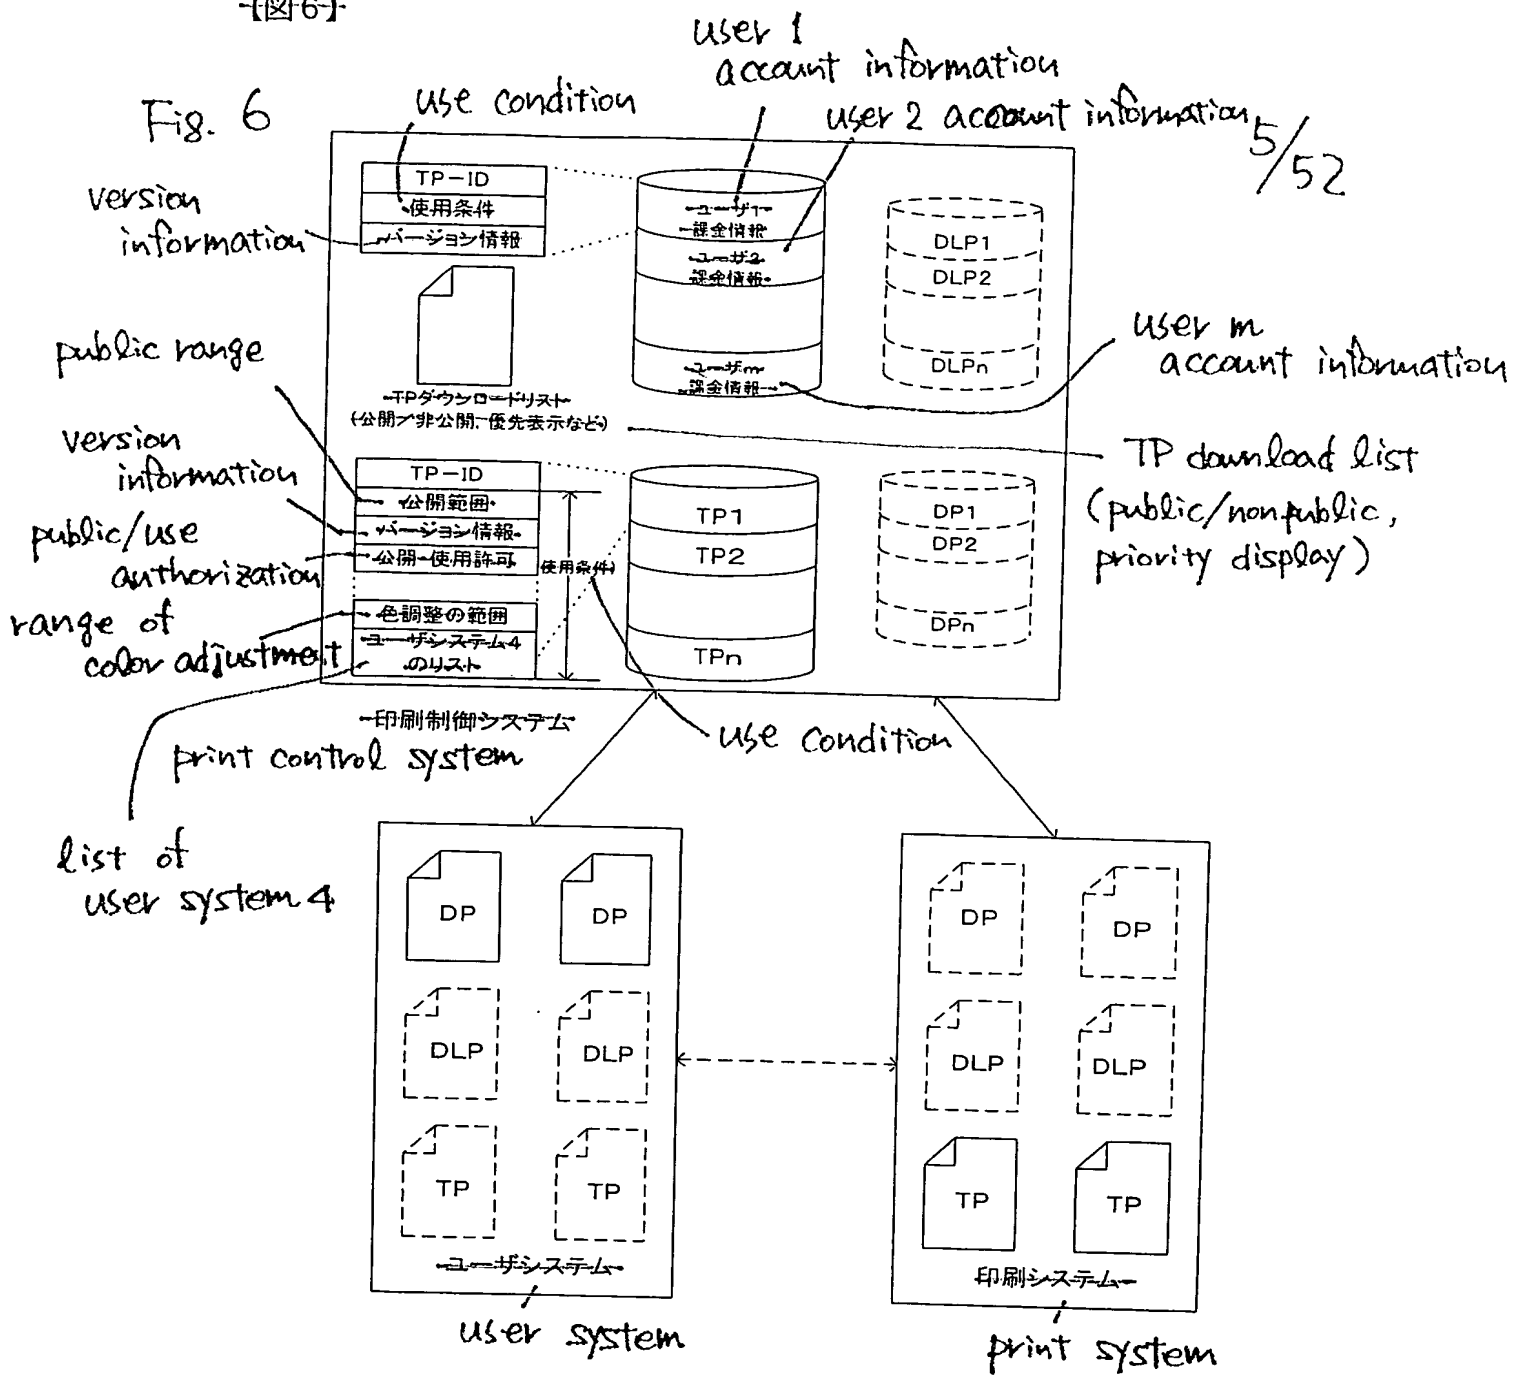 【図6】
Fig. 6
5/52
use condition
user 1
account information
user 2 account information
version
information
TP-ID
使用条件
バージョン情報
ユーザ1
課金情報
ユーザ2
課金情報
ユーザm
課金情報
DLP1
DLP2
DLPn
user m
account information
TPダウンロードリスト
(公開/非公開、優先表示など)
TP download list
(public/nonpublic,
priority display)
public range
version
information
public/use
authorization
range of
color adjustment
TP-ID
公開範囲
バージョン情報
公開・使用許可
色調整の範囲
ユーザシステム4
のリスト
使用条件
TP1
TP2
TPn
DP1
DP2
DPn
印刷制御システム
print control system
use condition
list of
user system 4
DP
DP
DLP
DLP
TP
TP
ユーザシステム
user system
DP
DP
DLP
DLP
TP
TP
印刷システム
print system